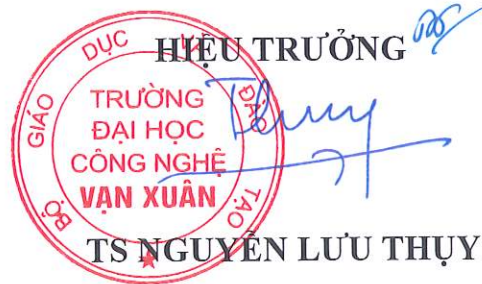 HIỆU TRƯỞNG
BỘ GIÁO DỤC VÀ ĐÀO TẠO
TRƯỜNG
ĐẠI HỌC
CÔNG NGHỆ
VẠN XUÂN
Thuy
TS NGUYỄN LƯU THỤY